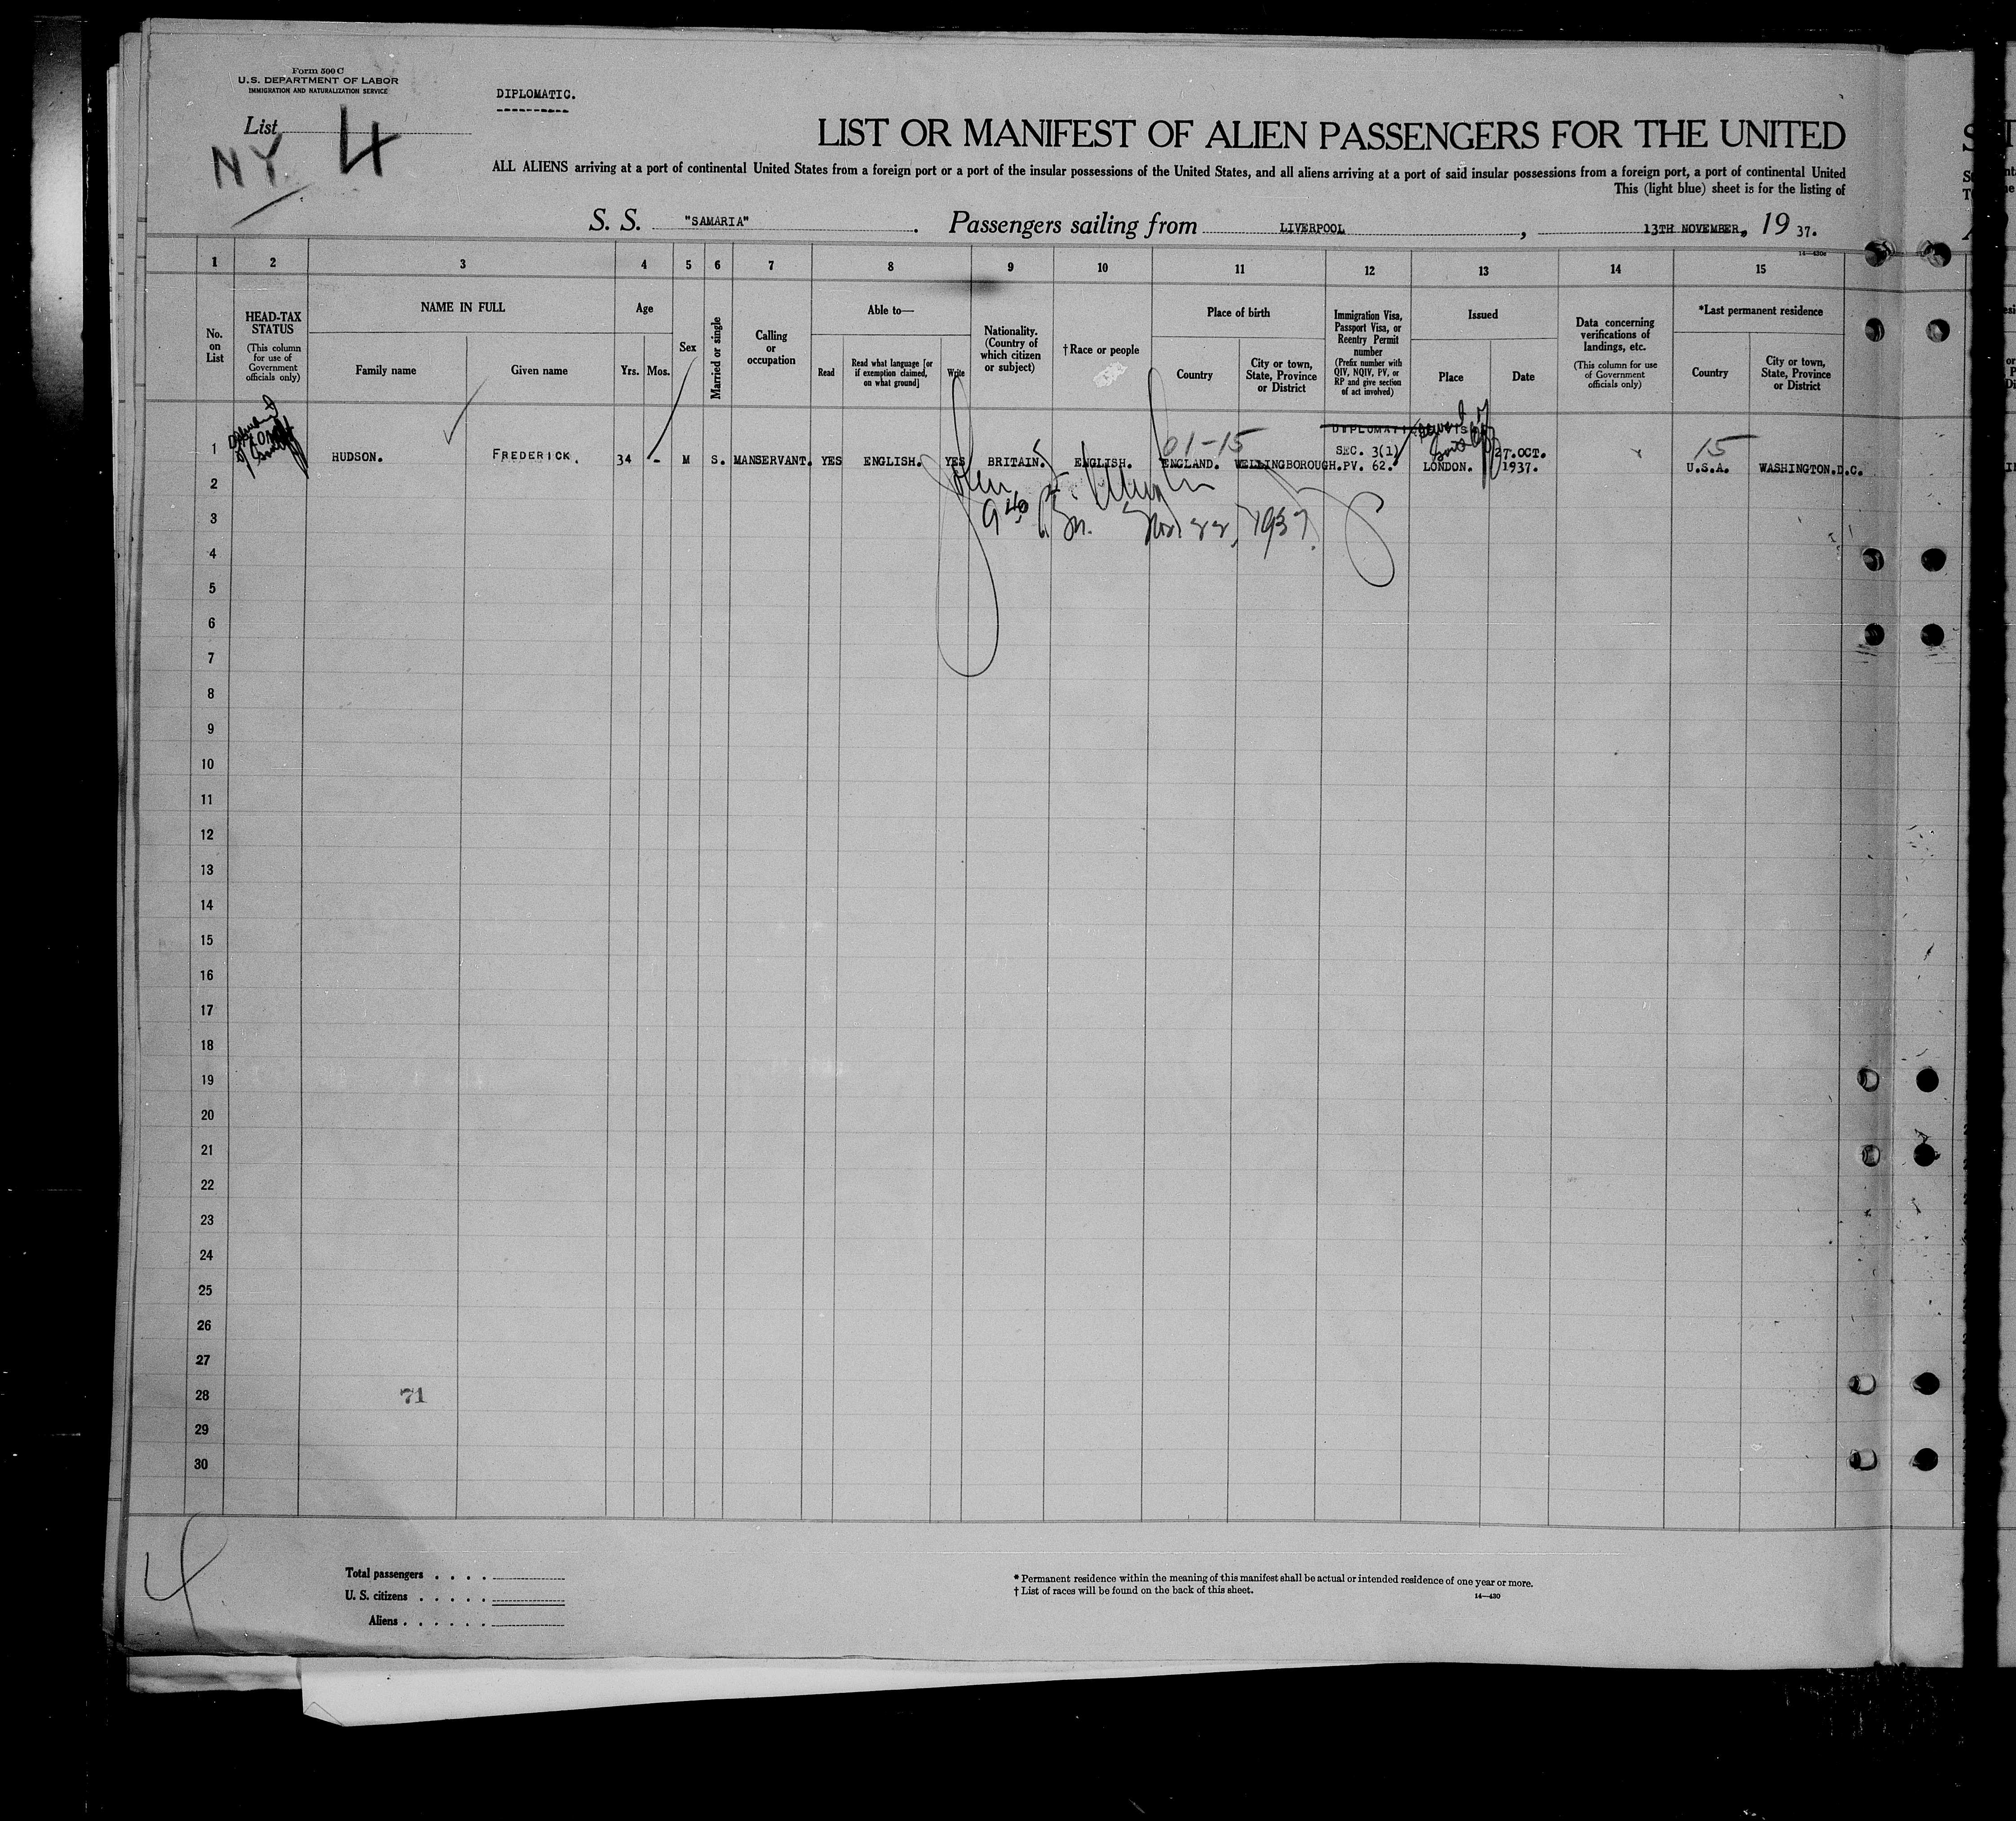 Form 500 C
U.S. DEPARTMENT OF LABOR
IMMIGRATION AND NATURALIZATION SERVICE
DIPLOMATIC.
List 4
NY
LIST OR MANIFEST OF ALIEN PASSENGERS FOR THE UNITED
ALL ALIENS arriving at a port of continental United States from a foreign port or a port of the insular possessions of the United States, and all aliens arriving at a port of said insular possessions from a foreign port, a port of continental United
This (light blue) sheet is for the listing of
S. S. "SAMARIA". Passengers sailing from LIVERPOOL, 13TH NOVEMBER, 19 37.
14—430a
1 2 3 4 5 6 7 8 9 10 11 12 13 14 15
No. on List
HEAD-TAX STATUS (This column for use of Government officials only)
NAME IN FULL
Family name
Given name
Age
Yrs. Mos.
Sex
Married or single
Calling or occupation
Able to—
Read
Read what language [or if exemption claimed, on what ground]
Write
Nationality. (Country of which citizen or subject)
†Race or people
Place of birth
Country
City or town, State, Province or District
Immigration Visa, Passport Visa, or Reentry Permit number (Prefix number with QIV, NQIV, PV, or RP and give section of act involved)
Issued
Place
Date
Data concerning verifications of landings, etc. (This column for use of Government officials only)
*Last permanent residence
Country
City or town, State, Province or District
01-15
15
DIPLOMATIC VISA
SEC. 3(1) 27.OCT.
1 HUDSON. FREDERICK. 34 - M S. MANSERVANT. YES ENGLISH. YES BRITAIN. ENGLISH. ENGLAND. WELLINGBOROUGH. PV. 62. LONDON. 1937. U.S.A. WASHINGTON.D.C.
2
3
1937.
4
5
6
7
8
9
10
11
12
13
14
15
16
17
18
19
20
21
22
23
24
25
26
27
28 71
29
30
4
Total passengers . . . .
U. S. citizens . . . . .
Aliens . . . . . .
* Permanent residence within the meaning of this manifest shall be actual or intended residence of one year or more.
† List of races will be found on the back of this sheet.
14—430